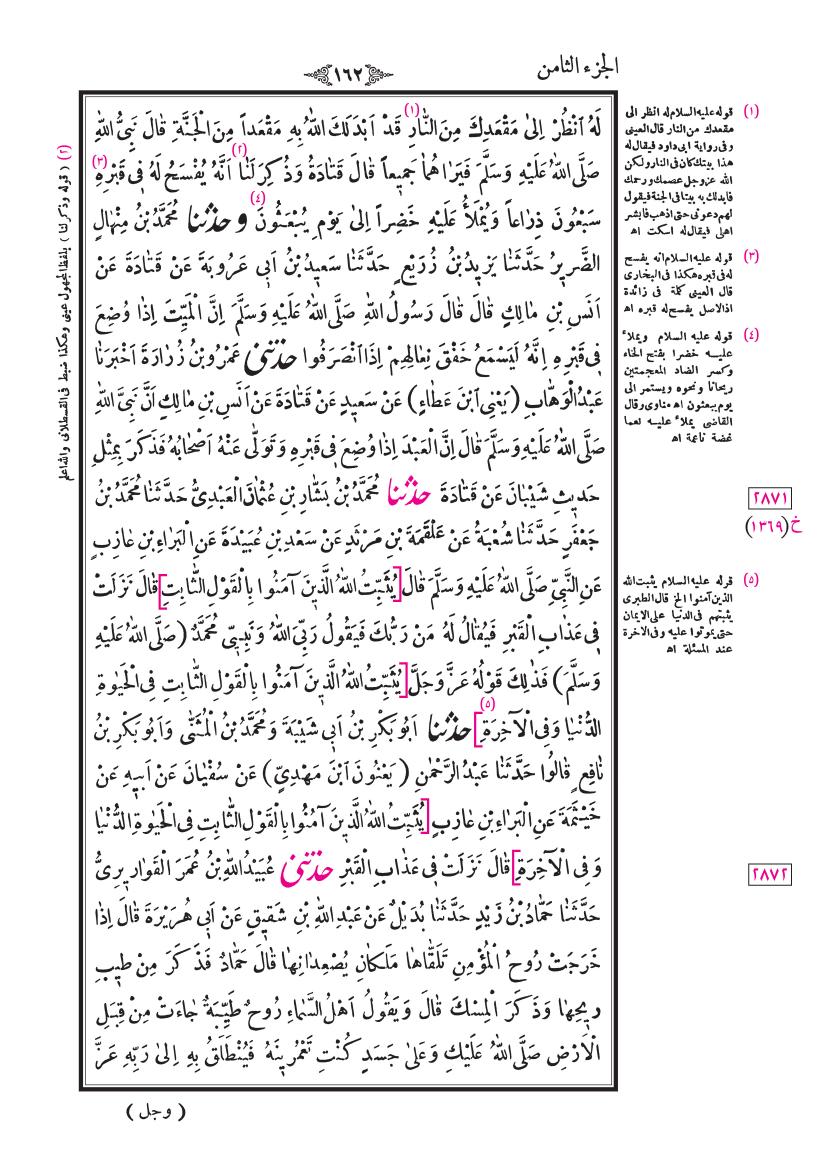 الجزء الثامن
١٦٢
لَهُ ٱنْظُرْ اِلىٰ مَقْعَدِكَ مِنَ النَّارِ (١) قَدْ اَبْدَلَكَ اللّٰهُ بِهِ مَقْعَداً مِنَ الْجَنَّةِ قَالَ نَبِيُّ اللّٰهِ
صَلَّى اللّٰهُ عَلَيْهِ وَسَلَّمَ فَيَرَاهُمَا جَمِيعاً قَالَ قَتَادَةُ وَذُكِرَ لَنَا (٢) اَنَّهُ يُفْسَحُ لَهُ فِي قَبْرِهِ (٣)
سَبْعُونَ ذِرَاعاً وَيُمْلَأُ عَلَيْهِ خَضِراً اِلىٰ يَوْمِ يُبْعَثُونَ (٤) وحدثنا مُحَمَّدُ بْنُ مِنْهَالٍ
الضَّرِيرُ حَدَّثَنَا يَزِيدُ بْنُ زُرَيْعٍ حَدَّثَنَا سَعِيدُ بْنُ اَبِي عَرُوبَةَ عَنْ قَتَادَةَ عَنْ
اَنَسِ بْنِ مَالِكٍ قَالَ قَالَ رَسُولُ اللّٰهِ صَلَّى اللّٰهُ عَلَيْهِ وَسَلَّمَ اِنَّ الْمَيِّتَ اِذَا وُضِعَ
فِي قَبْرِهِ اِنَّهُ لَيَسْمَعُ خَفْقَ نِعَالِهِمْ اِذَا ٱنْصَرَفُوا حدثنى عَمْرُو بْنُ زُرَارَةَ اَخْبَرَنَا
عَبْدُ الْوَهَّابِ (يَعْنِي ٱبْنَ عَطَاءٍ) عَنْ سَعِيدٍ عَنْ قَتَادَةَ عَنْ اَنَسِ بْنِ مَالِكٍ اَنَّ نَبِيَّ اللّٰهِ
صَلَّى اللّٰهُ عَلَيْهِ وَسَلَّمَ قَالَ اِنَّ الْعَبْدَ اِذَا وُضِعَ فِي قَبْرِهِ وَتَوَلَّى عَنْهُ اَصْحَابُهُ فَذَكَرَ بِمِثْلِ
حَدِيثِ شَيْبَانَ عَنْ قَتَادَةَ حدثنا مُحَمَّدُ بْنُ بَشَّارِ بْنِ عُثْمَانَ الْعَبْدِيُّ حَدَّثَنَا مُحَمَّدُ بْنُ
جَعْفَرٍ حَدَّثَنَا شُعْبَةُ عَنْ عَلْقَمَةَ بْنِ مَرْثَدٍ عَنْ سَعْدِ بْنِ عُبَيْدَةَ عَنِ الْبَرَاءِ بْنِ عَازِبٍ
عَنِ النَّبِيِّ صَلَّى اللّٰهُ عَلَيْهِ وَسَلَّمَ قَالَ [يُثَبِّتُ اللّٰهُ الَّذِينَ آمَنُوا بِالْقَوْلِ الثَّابِتِ] قَالَ نَزَلَتْ
فِي عَذَابِ الْقَبْرِ فَيُقَالُ لَهُ مَنْ رَبُّكَ فَيَقُولُ رَبِّيَ اللّٰهُ وَنَبِيِّي مُحَمَّدٌ (صَلَّى اللّٰهُ عَلَيْهِ
وَسَلَّمَ) فَذٰلِكَ قَوْلُهُ عَزَّ وَجَلَّ [يُثَبِّتُ اللّٰهُ الَّذِينَ آمَنُوا بِالْقَوْلِ الثَّابِتِ فِي الْحَيٰوةِ
الدُّنْيَا وَفِي الْآخِرَةِ] (٥) حدثنا اَبُو بَكْرِ بْنُ اَبِي شَيْبَةَ وَمُحَمَّدُ بْنُ الْمُثَنَّى وَاَبُو بَكْرِ بْنُ
نَافِعٍ قَالُوا حَدَّثَنَا عَبْدُ الرَّحْمٰنِ (يَعْنُونَ ٱبْنَ مَهْدِيٍّ) عَنْ سُفْيَانَ عَنْ اَبِيهِ عَنْ
خَيْثَمَةَ عَنِ الْبَرَاءِ بْنِ عَازِبٍ [يُثَبِّتُ اللّٰهُ الَّذِينَ آمَنُوا بِالْقَوْلِ الثَّابِتِ فِي الْحَيٰوةِ الدُّنْيَا
وَفِي الْآخِرَةِ] قَالَ نَزَلَتْ فِي عَذَابِ الْقَبْرِ حدثنى عُبَيْدُ اللّٰهِ بْنُ عُمَرَ الْقَوَارِيرِيُّ
حَدَّثَنَا حَمَّادُ بْنُ زَيْدٍ حَدَّثَنَا بُدَيْلٌ عَنْ عَبْدِ اللّٰهِ بْنِ شَقِيقٍ عَنْ اَبِي هُرَيْرَةَ قَالَ اِذَا
خَرَجَتْ رُوحُ الْمُؤْمِنِ تَلَقَّاهَا مَلَكَانِ يُصْعِدَانِهَا قَالَ حَمَّادٌ فَذَكَرَ مِنْ طِيبِ
رِيحِهَا وَذَكَرَ الْمِسْكَ قَالَ وَيَقُولُ اَهْلُ السَّمَاءِ رُوحٌ طَيِّبَةٌ جَاءَتْ مِنْ قِبَلِ
الْاَرْضِ صَلَّى اللّٰهُ عَلَيْكِ وَعَلىٰ جَسَدٍ كُنْتِ تَعْمُرِينَهُ فَيُنْطَلَقُ بِهِ اِلىٰ رَبِّهِ عَزَّ
( وجل )
(١) قوله عليه السلام له انظر الى
مقعدك من النار قال العينى
وفى رواية ابى داود فيقال له
هذا بيتك كان فى النار ولكن
الله عز وجل عصمك ورحمك
فابدلك به بيتا فى الجنة فيقول
لهم دعونى حتى اذهب فابشر
اهلى فيقال له اسكت اه
(٣) قوله عليه السلام انه يفسح
له فى قبره هكذا فى البخارى
قال العينى كلمة فى زائدة
اذ الاصل يفسح له قبره اه
(٤) قوله عليه السلام ويملأ
عليه خضرا بفتح الخاء
وكسر الضاد المعجمتين
ريحانا ونحوه ويستمر الى
يوم يبعثون اه مناوى وقال
القاضى يملأ عليه نعما
غضة ناعمة اه
٢٨٧١
خ (١٣٦٩)
(٥) قوله عليه السلام يثبت الله
الذين آمنوا الخ قال الطبرى
يثبتهم فى الدنيا على الايمان
حتى يموتوا عليه وفى الآخرة
عند المسئلة اه
٢٨٧٢
(٢) ( قوله وذكر لنا ) بلفظ المجهول عينى وهكذا ضبط فى القسطلانى والله اعلم